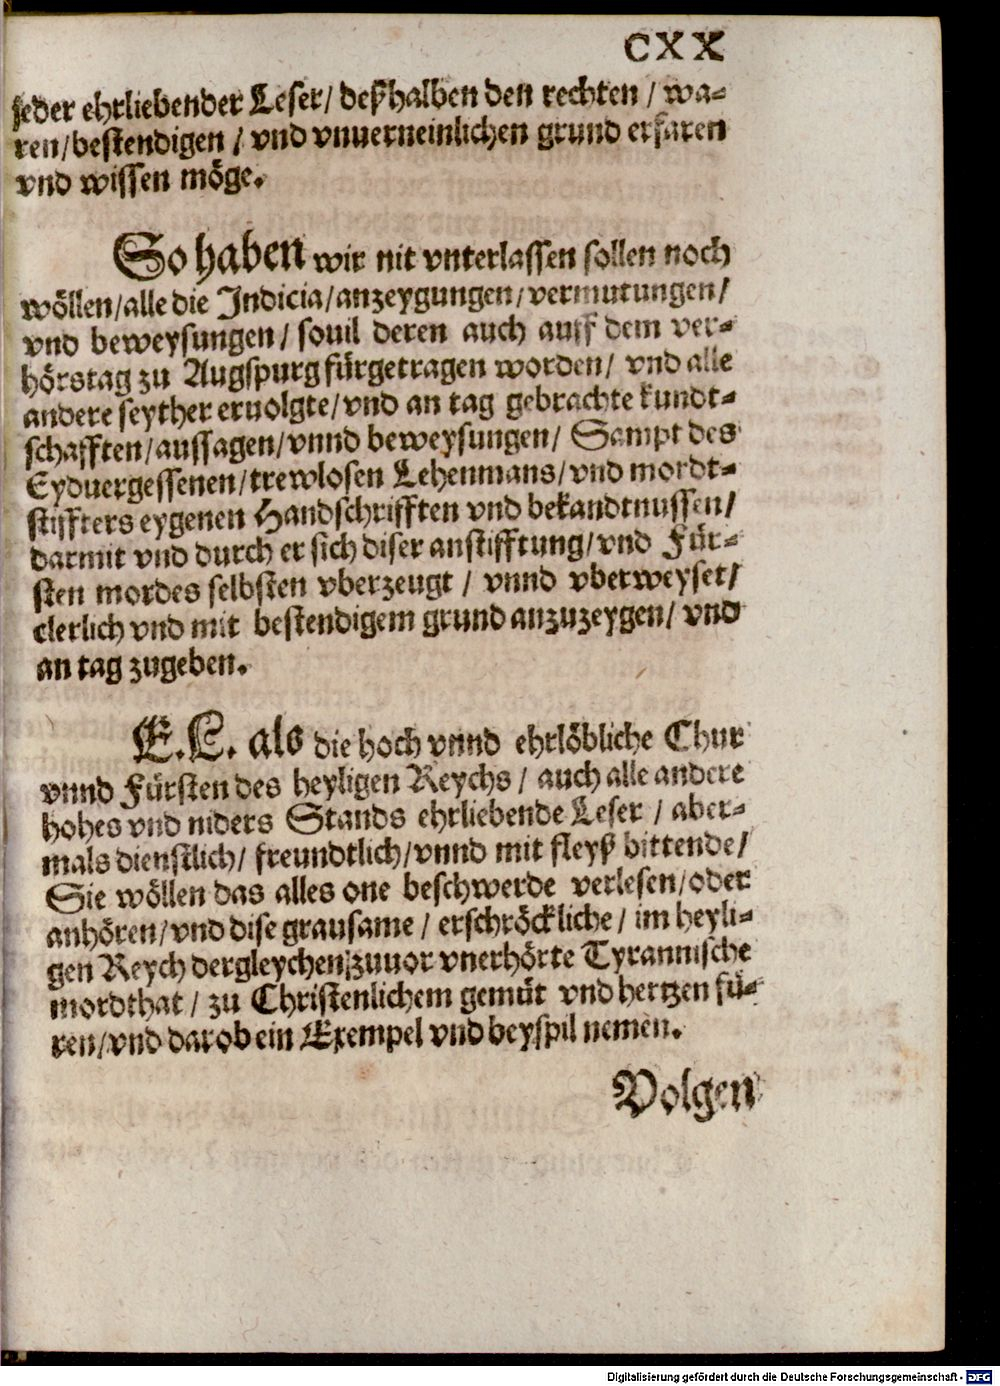 CXX
jeder ehrliebender Leser/ deßhalben den rechten / wa-
ren/bestendigen / vnd vnuerneinlichen grund erfaren
vnd wissen möge.
So haben wir nit vnterlassen sollen noch
wöllen/alle die Indicia/anzeygungen/vermutungen/
vnd beweysungen/ souil deren auch auff dem ver-
hörstag zu Augspurg fürgetragen worden/ vnd alle
andere seyther eruolgte/vnd an tag gebrachte kundt-
schafften/aussagen/vnnd beweysungen/ Sampt des
Eyduergessenen/trewlosen Lehenmans/vnd mordt-
stiffters eygenen Handschrifften vnd bekandtnussen/
darmit vnd durch er sich diser anstifftung/vnd Für-
sten mordes selbsten vberzeugt / vnnd vberweyset/
clerlich vnd mit bestendigem grund anzuzeygen/ vnd
an tag zugeben.
E.L. als die hoch vnnd ehrlöbliche Chur
vnnd Fürsten des heyligen Reychs / auch alle andere
hohes vnd niders Stands ehrliebende Leser / aber-
mals dienstlich/ freundtlich/vnnd mit fleyß bittende/
Sie wöllen das alles one beschwerde verlesen/oder
anhören/vnd dise grausame / erschröckliche / im heyli-
gen Reych dergleychen zuuor vnerhörte Tyrannische
mordthat / zu Christenlichem gemüt vnd hertzen fü-
ren/vnd darob ein Exempel vnd beyspil nemen.
Volgen
Digitalisierung gefördert durch die Deutsche Forschungsgemeinschaft - DFG